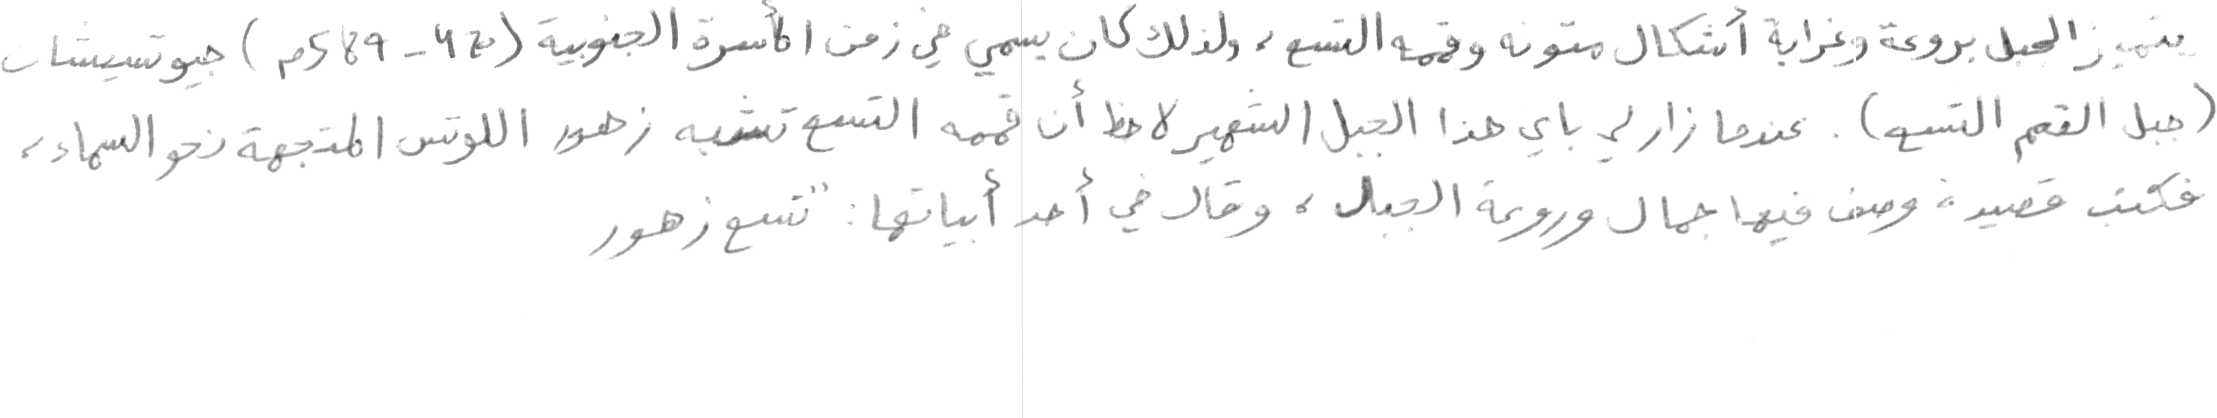 يتميز الجبل بروعة وغرابة أشكال متونه وقممه التسع، ولذلك كان يسمي في زمن الأسرة الجنوبية ( جيوتسيشان
(جبل القمم التسع). عندما زار لي باي هذا الجبل الشهير لاحظ أن قممه التسع تشبه زهور اللوتس المتجهة نحو السماء،
فكتب قصيدة وصف فيها جمال وروعة الجبال، وقال في أحد أبياتها: "تسع زهور